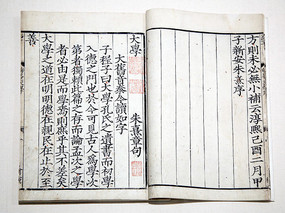 方則未必無小補云淳熙己酉二月甲
子新安朱熹序
大學 朱熹章句
大舊音泰今讀如字
子程子曰大學孔氏之遺書而初學
入德之門也於今可見古人為學次
第者獨賴此篇之存而論孟次之學
者必由是而學焉則庶乎其不差矣
大學之道在明明德在親民在止於至
善